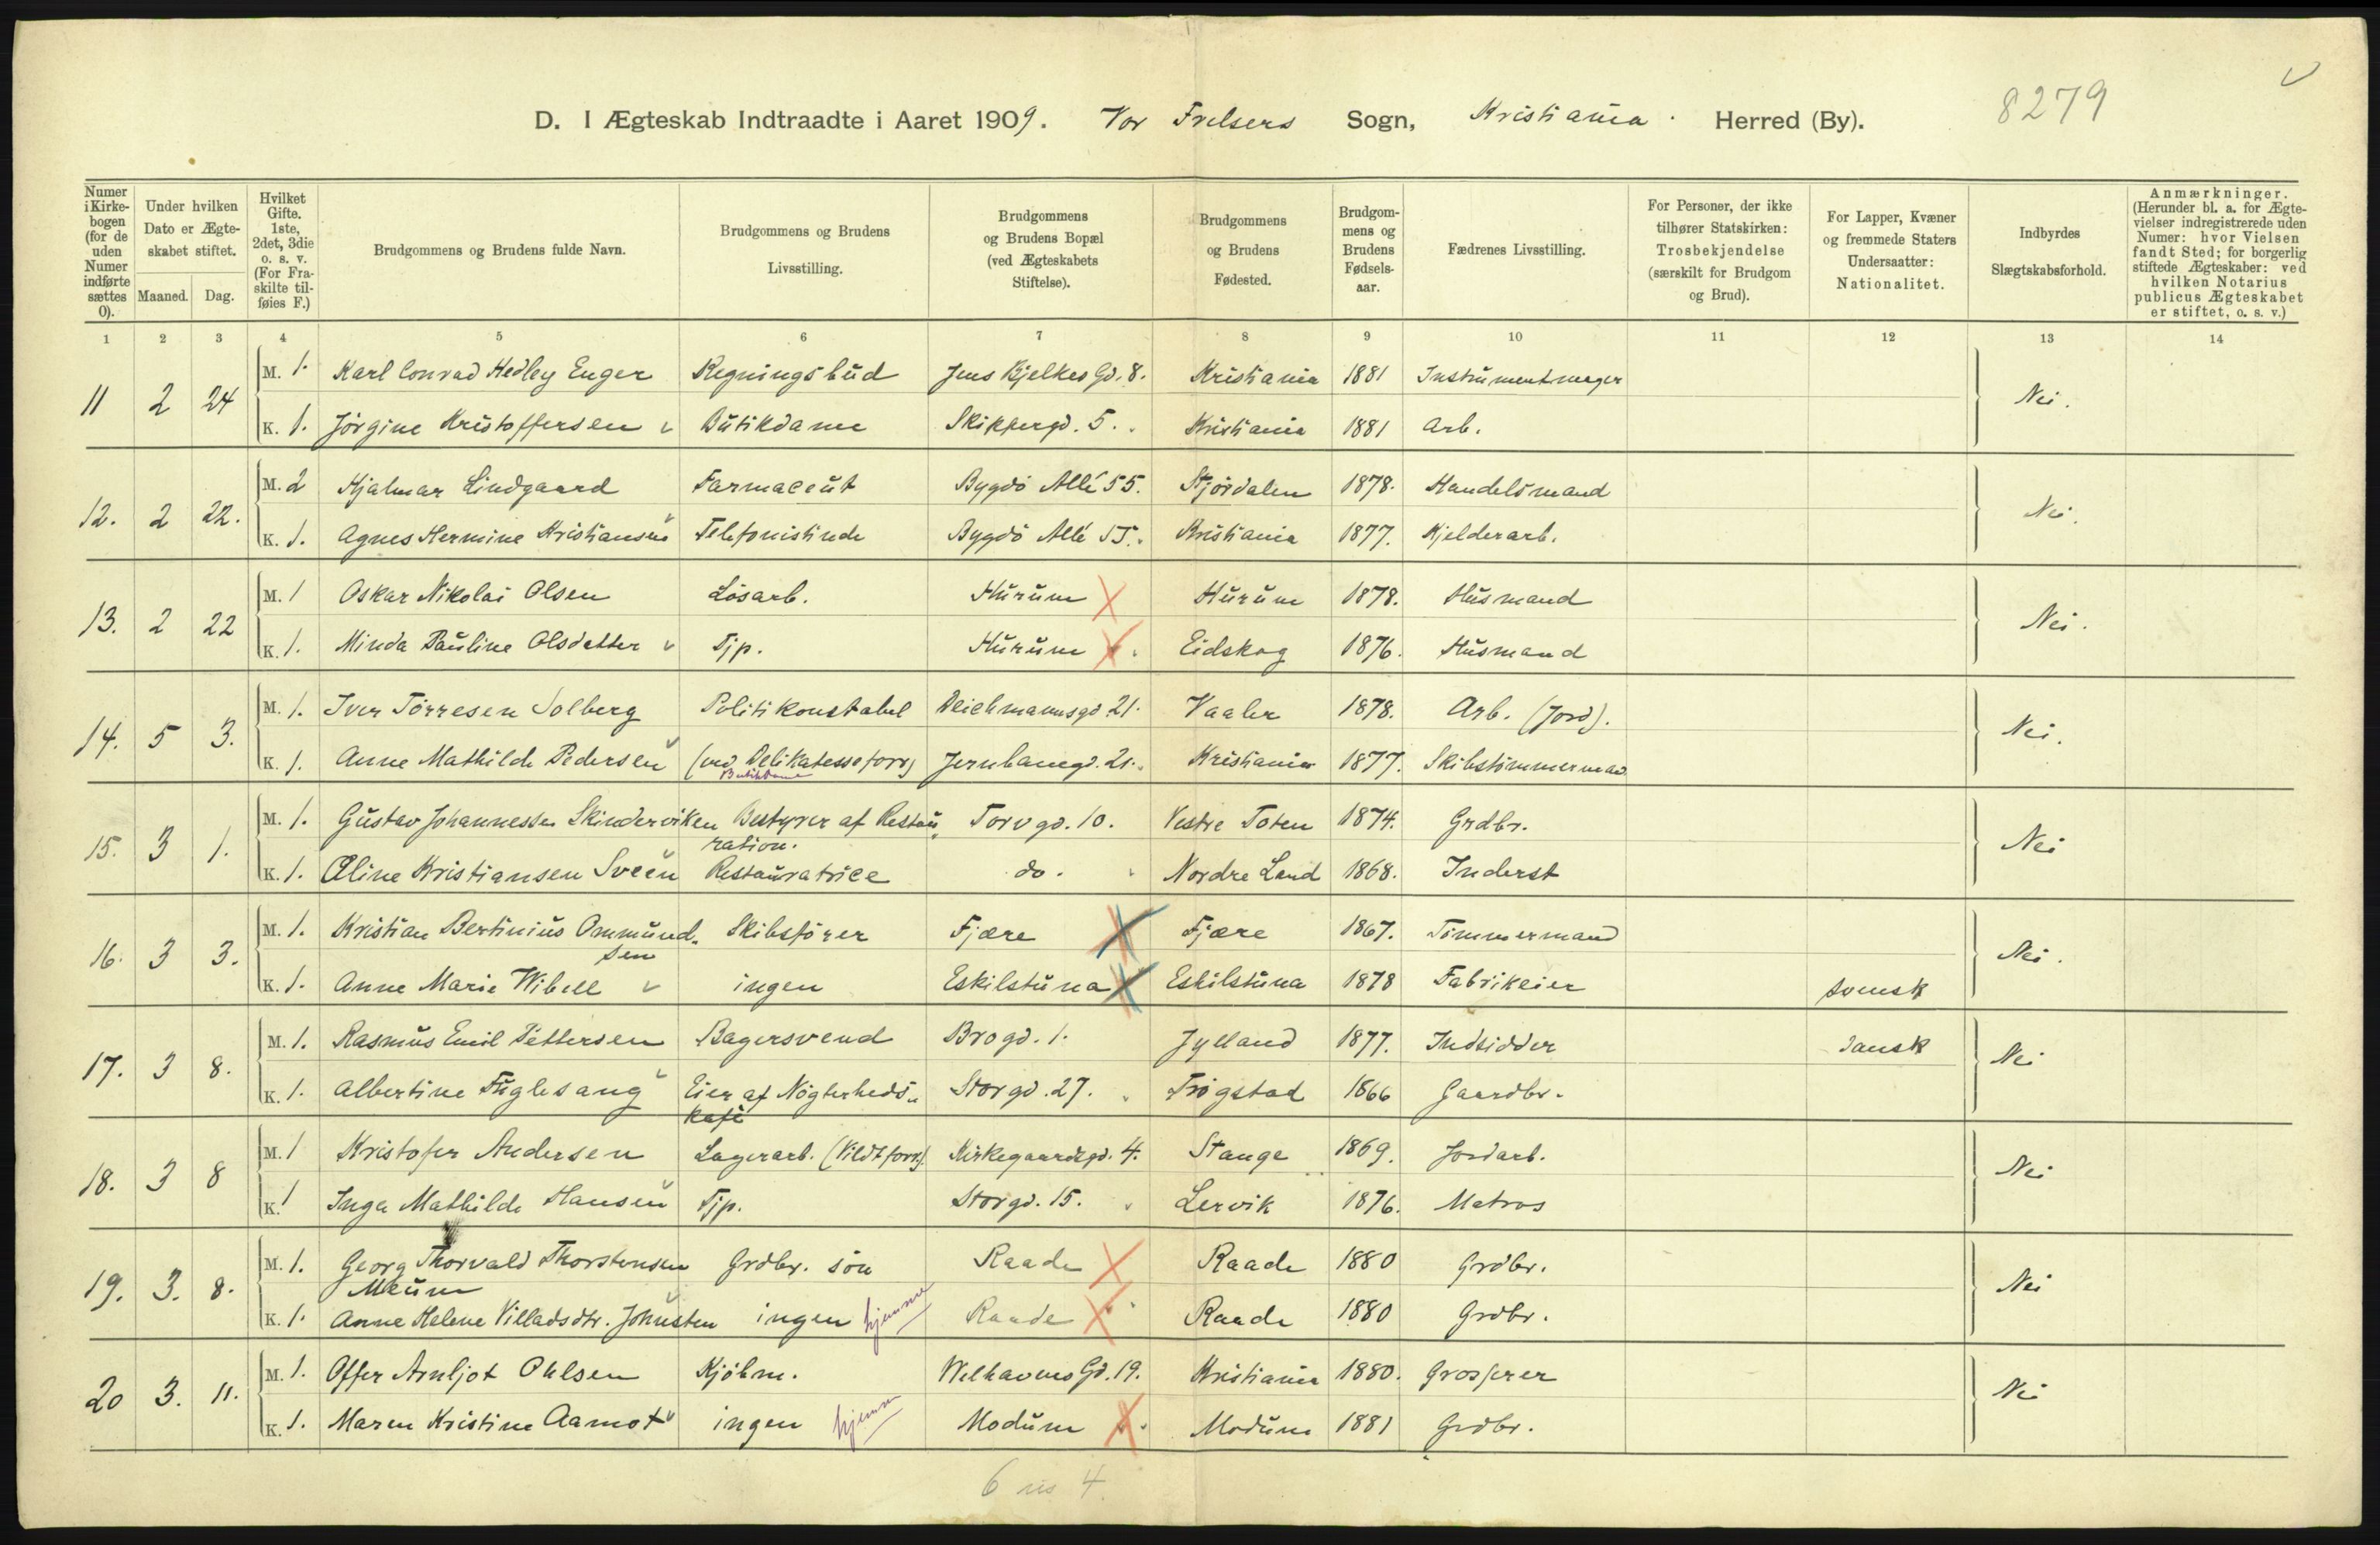 8279
D. I Ægteskab Indtraadte i Aaret 1909. Vor Frelsers Sogn, Kristiania. Herred (By).
Numer i Kirke-bogen (for de uden Numer indførte sættes 0).
Under hvilken Dato er Ægte-skabet stiftet.
Maaned. Dag.
Hvilket Gifte. 1ste, 2det, 3die o. s. v. (For Fra-skilte til-føies F.)
Brudgommens og Brudens fulde Navn.
Brudgommens og Brudens Livsstilling.
Brudgommens og Brudens Bopæl (ved Ægteskabets Stiftelse).
Brudgommens og Brudens Fødested.
Brudgom-mens og Brudens Fødsels-aar.
Fædrenes Livsstilling.
For Personer, der ikke tilhører Statskirken: Trosbekjendelse (særskilt for Brudgom og Brud).
For Lapper, Kvæner og fremmede Staters Undersaatter: Nationalitet.
Indbyrdes Slægtskabsforhold.
Anmærkninger. (Herunder bl. a. for Ægte-vielser indregistrerede uden Numer: hvor Vielsen fandt Sted; for borgerlig stiftede Ægteskaber: ved hvilken Notarius publicus Ægteskabet er stiftet, o. s. v.)
1 2 3 4 5 6 7 8 9 10 11 12 13 14
11 2 24 M. 1. Karl Conrad Hedley Enger Regningsbud Jens Bjelkes Gd. 8. Kristiania 1881 Instrumentmager Nei.
K. 1. Jörgine Kristoffersen Butikdame Skippergd. 5. Kristiania 1881 Arb.
12. 2 22. M. 2 Hjalmar Lindgaard Farmaceut Bygdö Allé 55. Stjördalen 1878. Handelsmand Nei.
K. 1. Agnes Hermine Kristiansen Telefonistinde Bygdö Allé 55. Kristiania 1877. Kjelderarb.
13. 2 22 M. 1 Oskar Nikolai Olsen Lösarb. Hurum Hurum 1878. Husmand Nei.
K. 1. Minda Pauline Olsdatter Tjp. Hurum Eidskog 1876. Husmand
14. 5 3. M. 1. Iver Törresen Solberg Politikonstabel Deichmannsgd. 21. Vaaler 1878. Arb. (Jord). Nei.
K. 1. Anne Mathilde Pedersen (ved Delikatesseforr) Jernbanegd. 21. Kristiania 1877. Skibstömmermand
Butikdame
15. 3 1. M. 1. Gustav Johannessen Skinderviken Bestyrer af Restau„ Torvgd. 10. Vestre Toten 1874. Grdbr. Nei
ration.
K. 1. Oline Kristiansen Sveen Restauratrice do. Nordre Land 1868. Inderst
16. 3 3. M. 1. Kristian Bertinius Ommund„ Skibsförer Fjære Fjære 1867. Tömmermand Nei.
sen
K. 1. Anne Marie Wibell ingen Eskilstuna Eskilstuna 1878 Fabrikeier svensk
17. 3 8. M. 1. Rasmus Emil Pettersen Bagersvend Brogd. 1. Jylland 1877. Indsidder dansk Nei
K. 1. Albertine Fuglesang Eier af Nögterheds„ Storgd. 27. Trögstad 1866 Gaardbr.
kafé
18. 3 8 M. 1 Kristofer Andersen Lagerarb. (Vildtforr.) Kirkegaardsgd. 4. Stange 1869. Jordarb. Nei
K. 1 Inga Mathilde Hansen Tjp. Storgd. 15. Lervik 1876. Matros
19. 3. 8. M. 1. Georg Thorvald Thorstensen Grdbr. sön Raade Raade 1880 Grdbr. Nei
Meum
K. 1. Anne Helene Villadsdtr. Johnsten ingen hjemme Raade Raade 1880 Grdbr.
20 3. 11. M. 1. Offer Arnljot Ohlsen Kjöbm. Welhavens Gd. 19. Kristiania 1880. Grosserer Nei
K. 1. Maren Kristine Aamot ingen hjemme Modum Modum 1881 Grdbr.